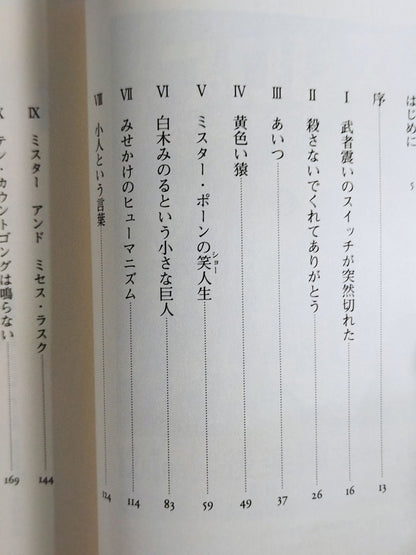 はじめに 5
序 13
I 武者震いのスイッチが突然切れた 16
II 殺さないでくれてありがとう 26
III あいつ 37
IV 黄色い猿 49
V ミスター・ポーンの笑人生 59
ショー
VI 白木みのるという小さな巨人 83
VII みせかけのヒューマニズム 114
VIII 小人という言葉 124
IX ミスター アンド ミセス・ラスク 144
X テン・カウントゴングは鳴らない 169